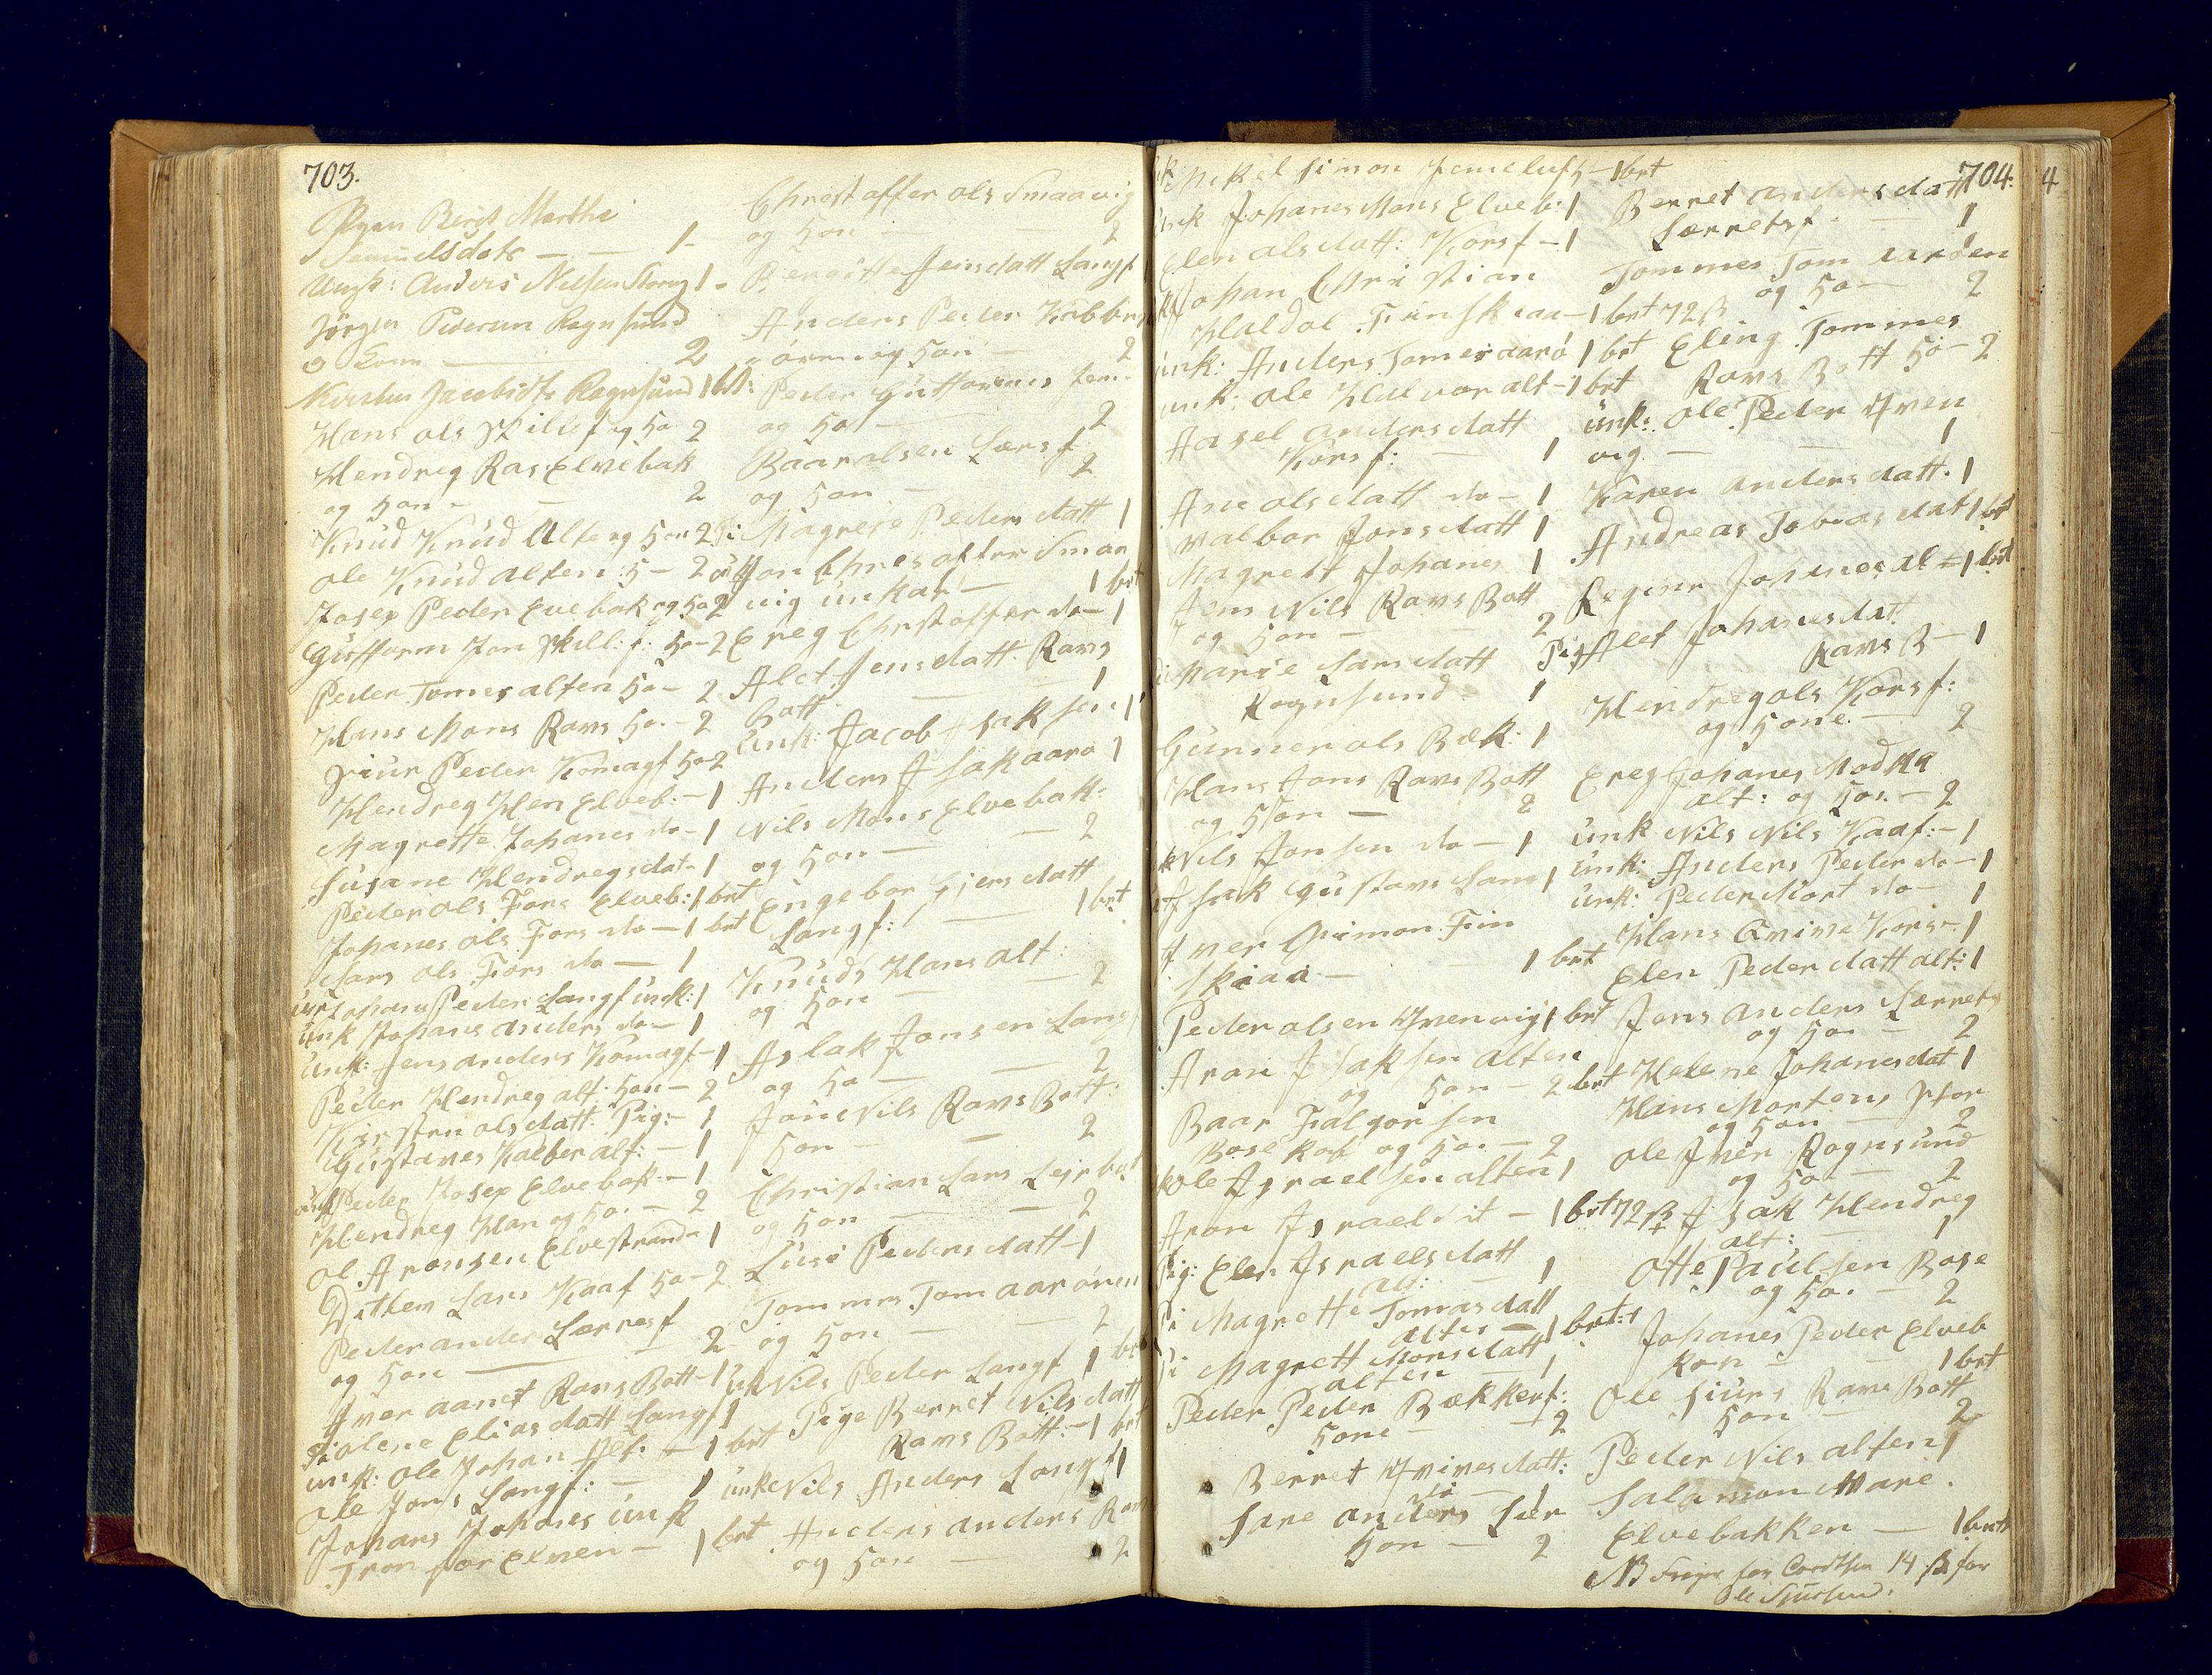 703.
Pigen Birgit Marthe
Samuelsdotr — — 1-
Ungk: Anders Nielsen Kong 1-
Jörgen Pedersen Rognsund
o Kone — 2
Kirsten Jacobsdtr Rognsund 1 brt:
Hans ols Skillef og Ko 2
Hendreg Ras: Elvebak
og Kon - — 2
Knud Knud Alte og Kon 2
ole Knud alten: K — 2
Josep Peder Evebak og Ko 2
Guttorm Jon Skill: f: Ko - 2
Peder Tomes alten Ko - 2
Hans Mons Ravs Ko. - 2
Siur Peder Komagf Ko 2
Hendreg Hen Elveb: - 1
Magrette Johanes do - 1
Susane Hendregsdat - 1
Peder ols Fors Elveb: 1 brt
Johanes ols Fors do — 1 brt
Lars ols Fors do — 1
unk Johans Peder Langf unk: 1
unk Johans anders do — 1
unk: Jens anders Komagf - 1
Peder Hendreg alt: Kon - 2
Kirsten olsdatt: Pig: - 1
Gustaves Kalber alt: - 1
unk Peder Josep Elvebak: - 1
Hendreg Han og Ko. - 2
Ol Aronsen Elvestrand - 1
Ditlem Lars Kaaf Ko - 2
Peder ander Lerresf
og Kon — 2
Iver aanet Ravs Bott - 1
Pi olene Eliasdatt Langf 1
unk: ole Johan Alt: — 1 brt
ole Jons Langf: — 1
Johans Johanes unk
Tron for Elven — 1 brt
Chrestoffer ols Smaavig
og Kon — — 2
Beroitte Jensdatt Langf 1
Anders Peder Kibbens
ören og Kon — 2
Peder Guttorms Jem
og Ko — 2
Baar alsen Lersf
og Kon — 2
Pi: Magrete Pedersdatt 1
Jon Chrestoffer Smaa
vig unkal — 1 brt
Ereg Chrstoffer do — 1
Alet Jensdatt Ravs
Bott — 1
Unk: Jacob Isaksen 1
Anders Isak aarö 1
Nils Mons Elvebak:
og Kon — 2
Engebor Gjersdatt
Langf: — 1 brt
Knuds Hans alt:
og Kon — 2
Aslak Jonsen Langf
og Ko — 2
Jon Nils Ravs Bott:
Kon — 2
Christian Lars Lejrbot
og Kon — 2
Lusi Pedersdatt — 1
Tommes Tom aarören
og Kon — 2
unk Nils Peder Langf 1 brt
Pige Berret Nilsdatt
Ravs Bott: — 1 brt
unk Nils Anders Langf 1
Anders anders Rav
og Kon — 2
704.
Mekel Simon Jemeluft — 1 brt
unk Johanes Mons Elveb: 1
Elen alsdatt: Korsf — 1
Johan Christian
Haldol Finskiaa — 1 brt 72 ß
unk: Anders Tomes aarö 1 brt
unk: ole Halvor alt — 1 brt
Aasel andersdatt
Korsf: — 1
Ane olsdatt do — 1
valbor Jonsdatt 1
Magrett Johanes 1
Jens Nils Ravs Bott
og Kon — 2
Marie Larsdatt
Rognsund — 1
Gunner ols Bæk: 1
Hans Jons Ravs Bott
og Kon — 2
Nils Jonsen do — 1
Isak Gustavs Lang 1
Iver Simon Fin
skiaa — 1 brt
Peder olsen Qvenvig 1 brt
Aron Isaksen alten
og Kon — 2 brt
Baar Falgorsen
Bosekob og Ko. — 2
ole Israelsen alten 1
Aron Israel dit — 1 brt 72 ß
Pig: Elen Israelsdatt
alt: — 1
Pi Magrette Tomasdatt
alten — 1 brt:
Pi Magrett Monsdatt
alten — 1
Peder Peder Bækkerf:
Kone — 2
Berret Qvivesdatt:
do — 1
Sare anders Ler
Kon — 2
Berret andersdatt
Lerretsf — 1
Tommes Tom aarøen
og Ko — 2
Eling Tommes
Ravs Bott Ko — 2
unk: ole Peder Qven
vig — — 1
Karen andersdatt. 1
Andreas Tobiasdat 1 brt
Reginr Johanes al — 1 brt
Pig Alet Johanesdat
Ravs B — 1
Hendreg ols Korsf:
og Kone — 2
Ereg Johanes Modka
alt: og Kon. — 2
unk Nils Nils Kaaf: — 1
unk: Anders Peder do — 1
unk: Peder Mort do — 1
Hans Qvive Kors — 1
Elen Pederdatt alt: 1
Jens anders Lerrets
og Kon — 2
Helene Johanesdat 1
Hans Mortens Stor
og Kon — 2
ole Iver Rognsund
og Ko — 2
Isak Hendreg
alt: — 1
Otte Paulsen Bose
og Ko. — 2
Johanes Peder Elveb
Kon — 1 brt
Ole Siurs Ravs Bott
Kon — 2
Peder Nils alten 1
Salamon Mare.
Elvebakken — 1 brt
NB for Cordtsen 14 ß for
Ole Sjursen:
4